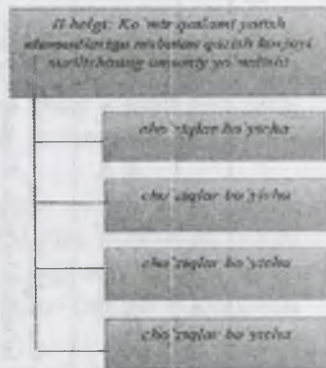 II-belgi: Ko'mir qatlami yotish
elementlariga nisbatan qazish kavjoyi
surilishining umumiy yo'nalishi
cho'ziqlar bo'yicha
cho'ziqlar bo'yicha
cho'ziqlar bo'yicha
cho'ziqlar bo'yicha